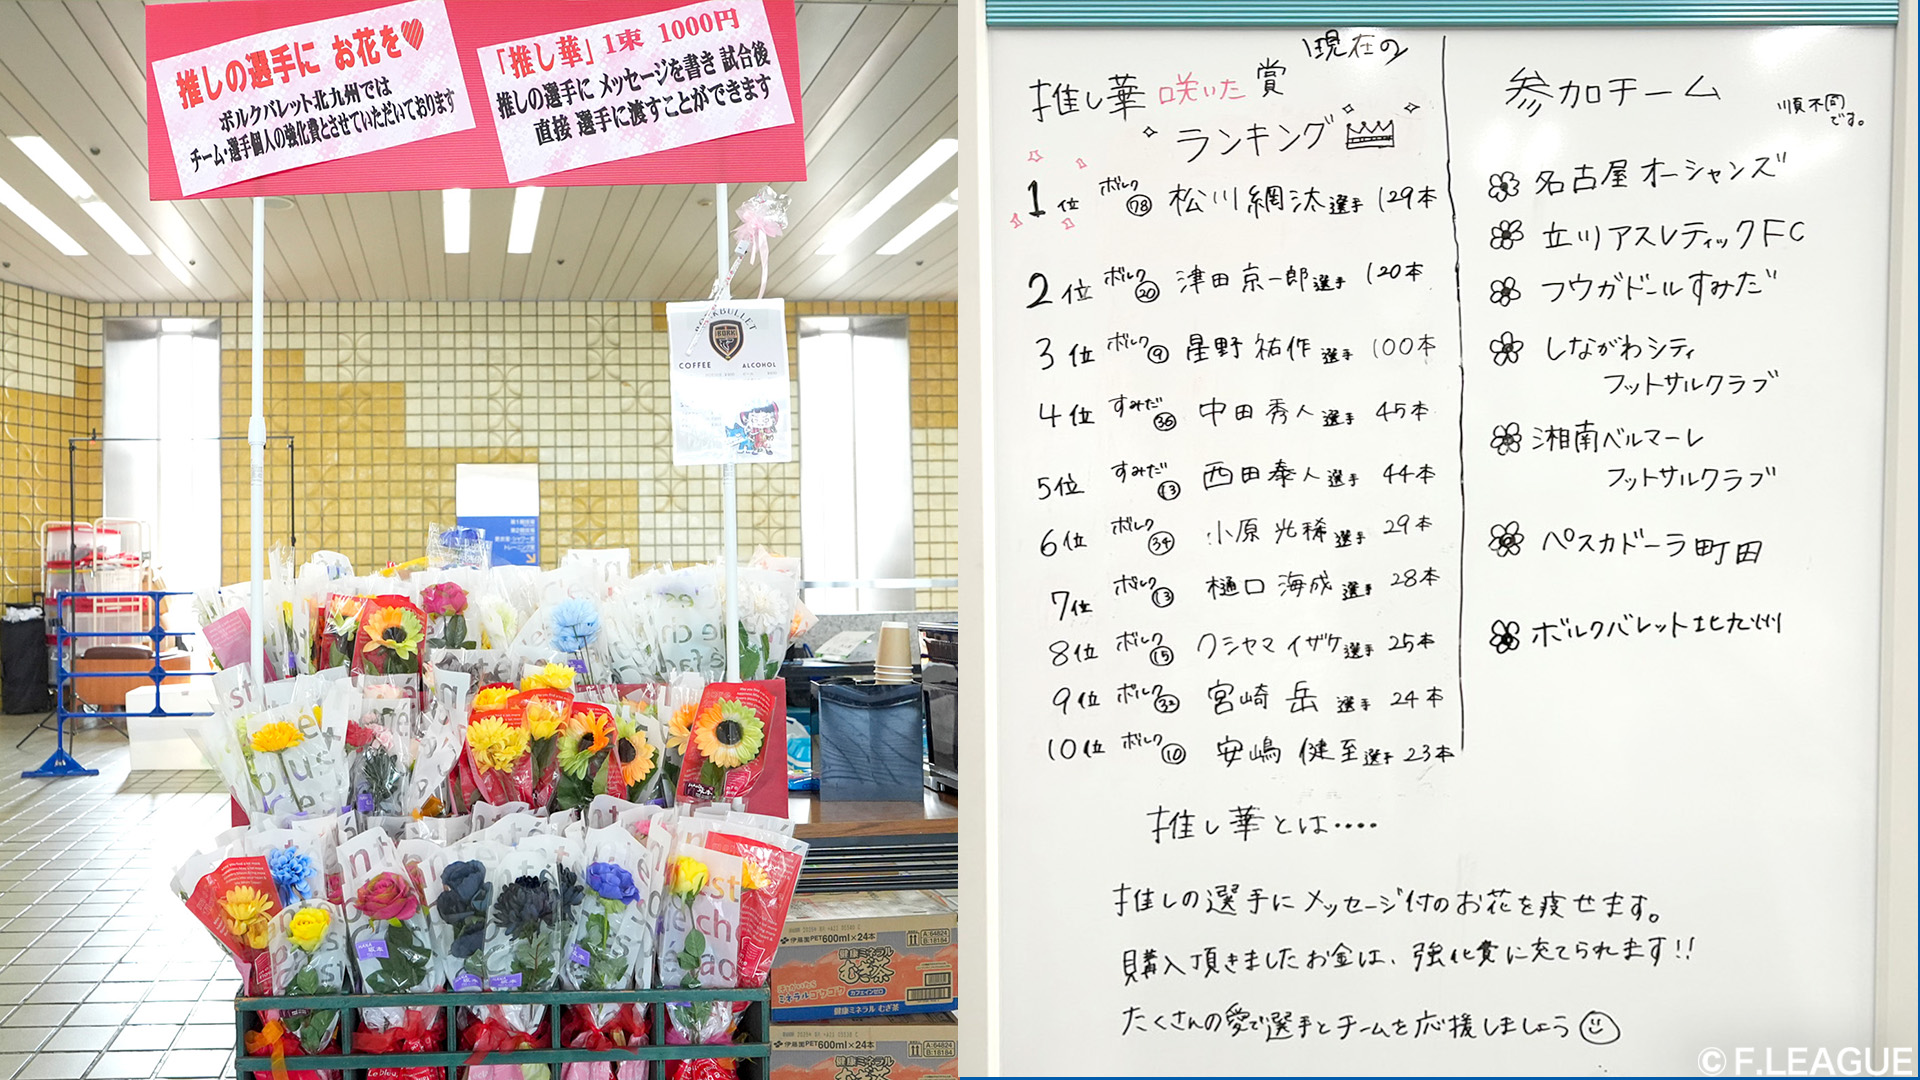 推しの選手に お花を♥
ボルクバレット北九州では
チーム・選手個人の強化費とさせていただいております
「推し華」1束 1000円
推しの選手に メッセージを書き 試合後
直接 選手に渡すことができます
BORKBULLET
BORK
COFFEE
ALCOHOL
伊藤園PET600ml×24本
A:64824
B:18184
健康ミネラル
むぎ茶
カフェインゼロ
健康ミネラル むぎ茶
伊藤園PET600ml×24本
A:64824
B:18184
健康ミネラル
現在の
推し華 咲いた賞
ランキング
1位 ボルク⑱ 松川網汰選手 129本
2位 ボルク⑳ 津田京一郎選手 120本
3位 ボルク⑨ 星野祐作選手 100本
4位 すみだ㊱ 中田秀人選手 45本
5位 すみだ⑬ 西田泰人選手 44本
6位 ボルク㉞ 小原光稀選手 29本
7位 ボルク⑬ 樋口海成選手 28本
8位 ボルク⑮ クシヤマイザケ選手 25本
9位 ボルク㉜ 宮崎岳選手 24本
10位 ボルク⑩ 安嶋健至選手 23本
参加チーム
順不同です。
名古屋オーシャンズ
立川アスレティックFC
フウガドールすみだ
しながわシティ
フットサルクラブ
湘南ベルマーレ
フットサルクラブ
ペスカドーラ町田
ボルクバレット北九州
推し華とは‥‥
推しの選手にメッセージ付のお花を渡せます。
購入頂きましたお金は、強化費に充てられます!!
たくさんの愛で選手とチームを応援しましょう
© F.LEAGUE